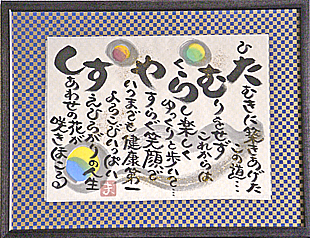 ひたむきに築きあげた
この道…
むりをせず
これからは
らくらくと楽しく
ゆっくりと歩いて…
やすらぐ笑顔で
いつまでも健康第一
すえひろがりの人生
よろこびいっぱい
しあわせの花が
咲きほこる